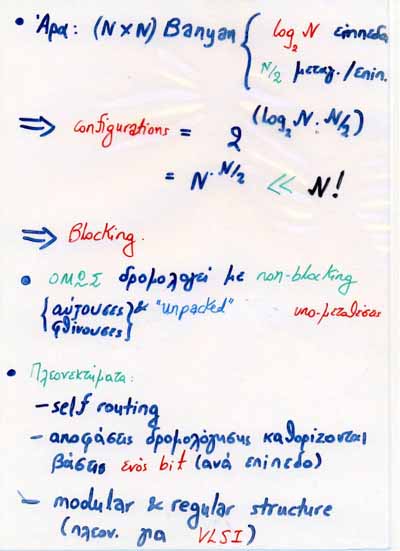 • Άρα: (N×N) Banyan { log₂ N επίπεδα
N/2 μεταγ./επιπ.
⇒ configurations = 2^(log₂ N · N/2)
= N^N/2 << N!
⇒ Blocking.
• ΟΜΩΣ δρομολογεί με non-blocking
{αύξουσες & "unpacked" υπο-μεταθέσεις
φθίνουσες}
• Πλεονεκτήματα:
– self routing
– αποφάσεις δρομολόγησης καθορίζονται
βάσει ενός bit (ανά επίπεδο)
– modular & regular structure
(πλεον. για VLSI)